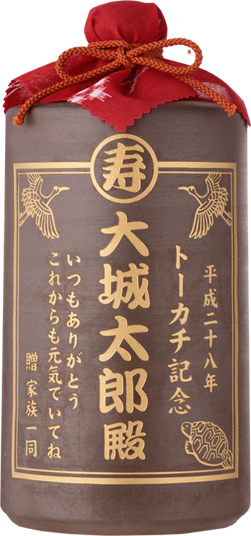 寿
平成二十八年
トーカチ記念
大城太郎殿
いつもありがとう
これからも元気でいてね
贈 家族一同